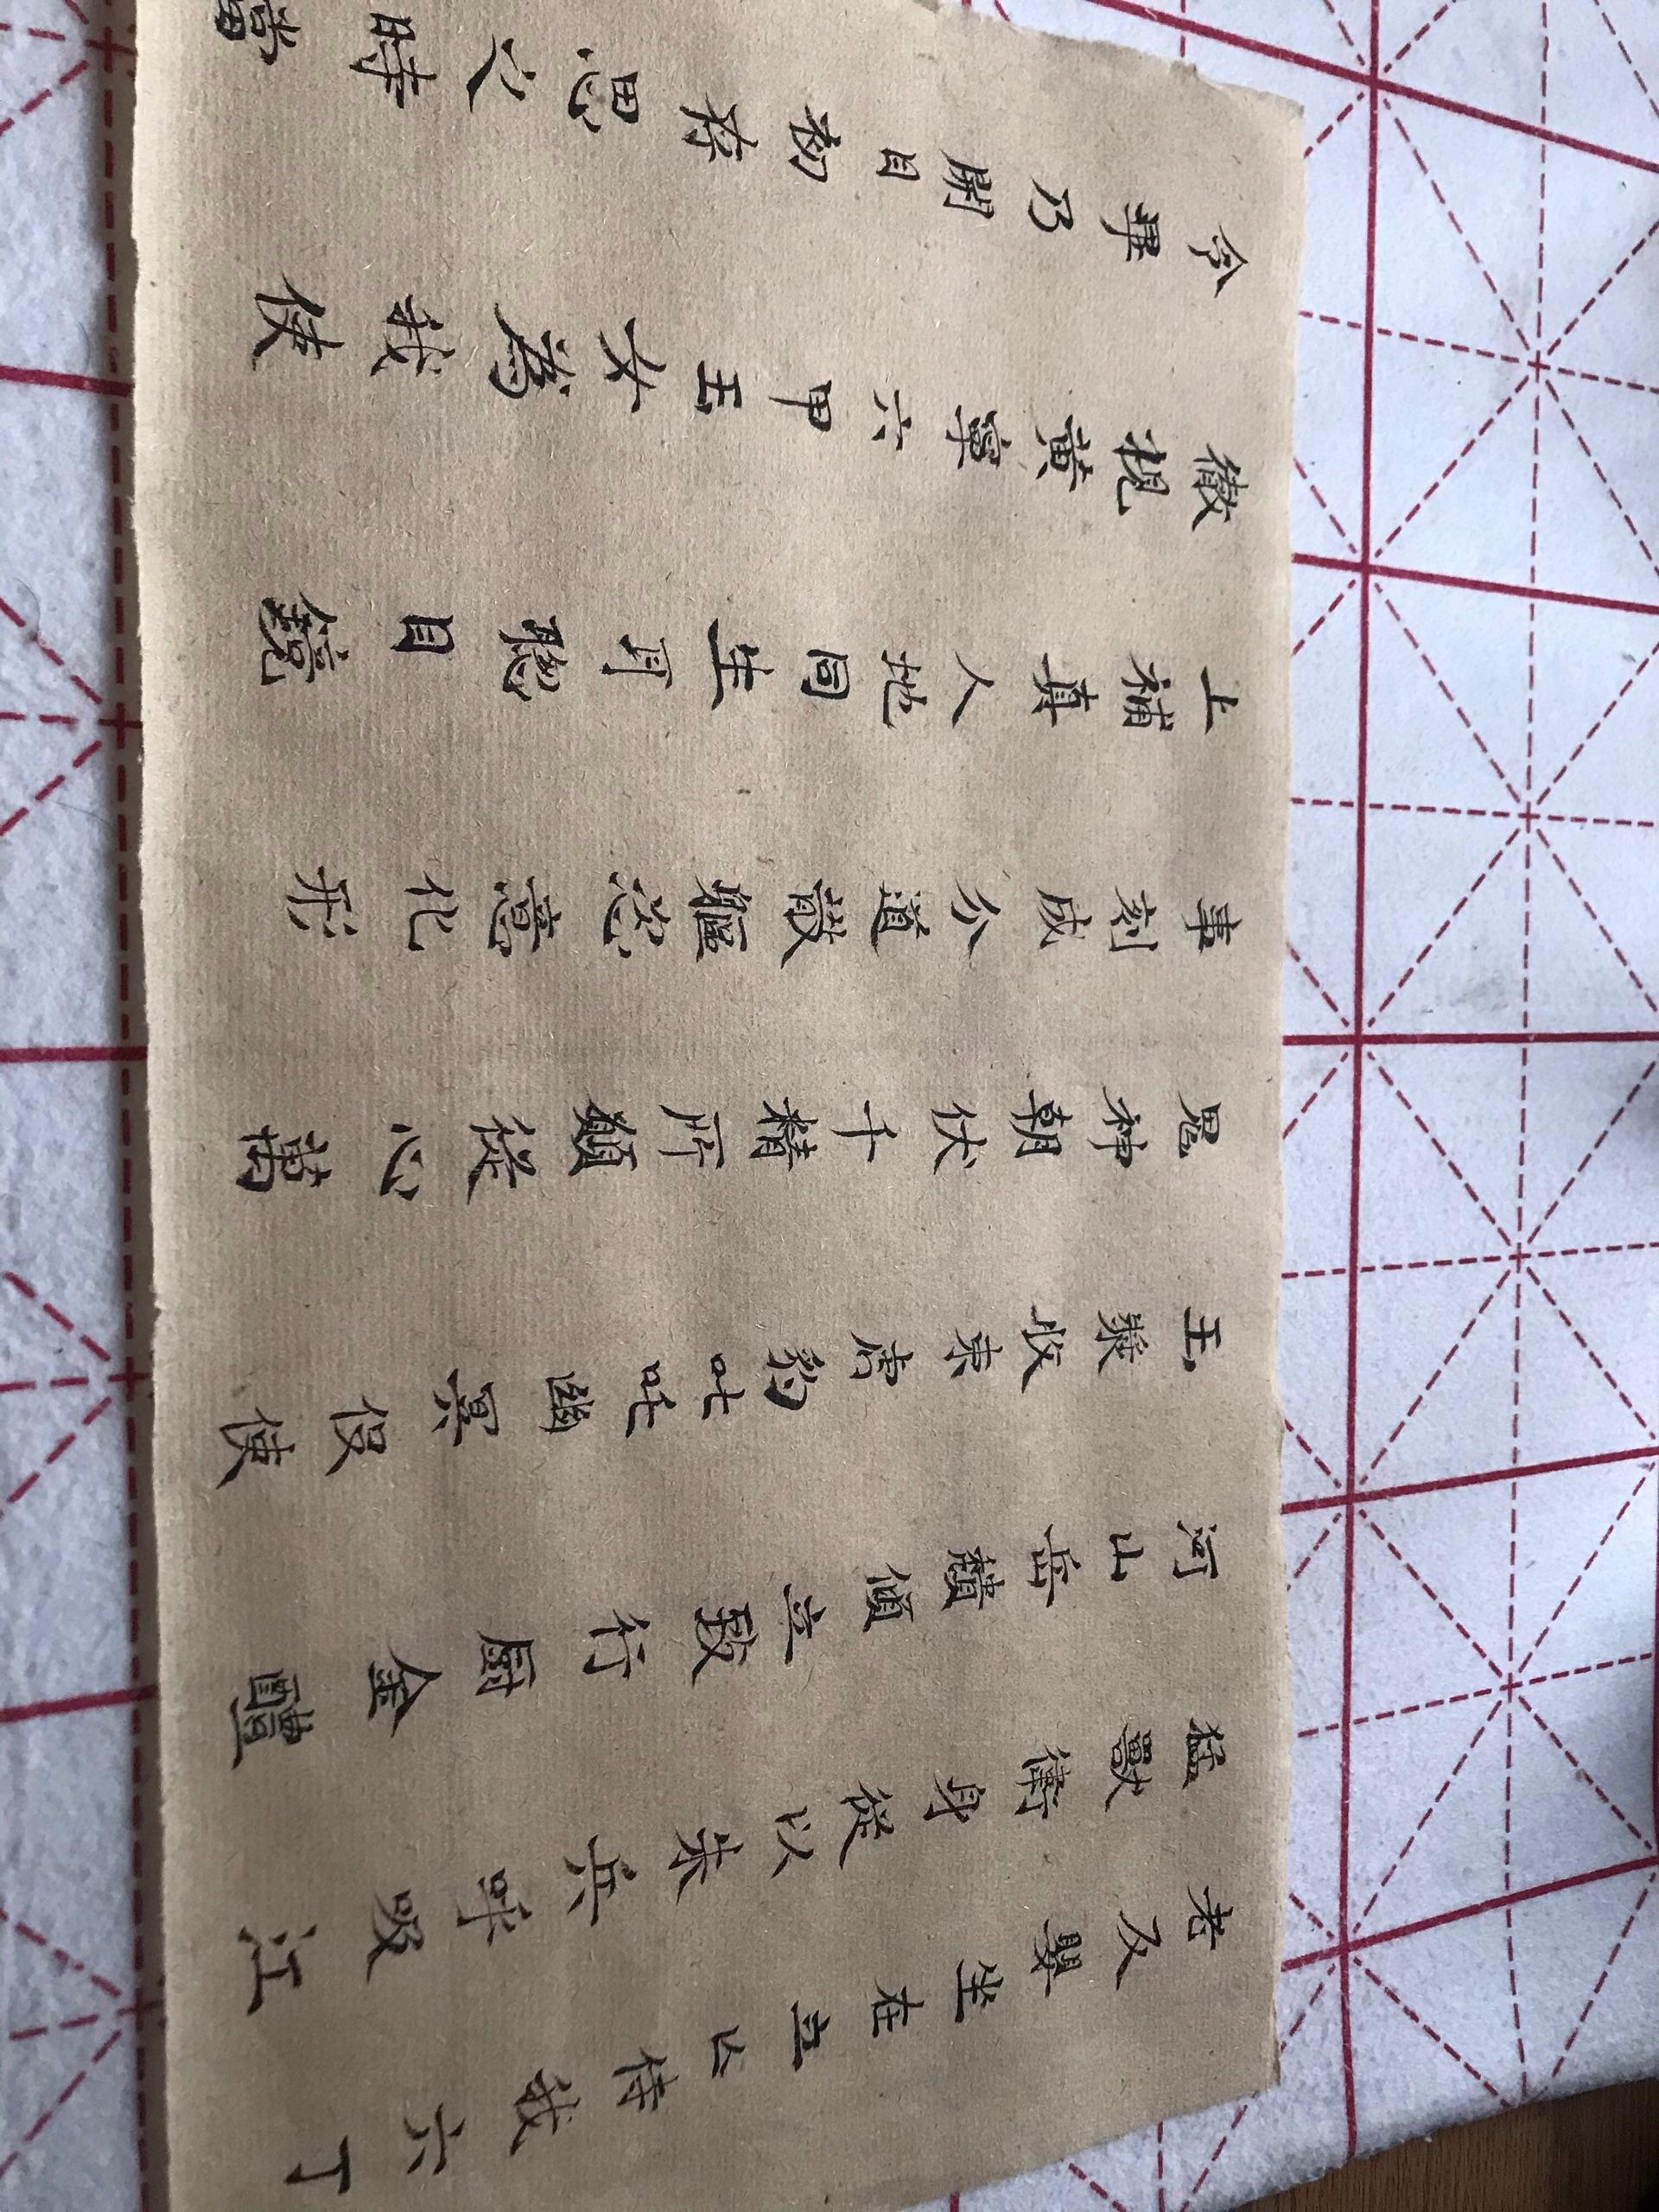 老反嬰坐在立亡侍我六丁
猛獸衛身從以朱兵呼吸江
河山岳頹傾立致行廚金醴
玉漿收束虎豹叱吒幽冥役使
鬼神朝伏千精所願從心萬
事剋成分道散軀恣意化形
上補真人地同生耳聰目鏡
徹視黃寧六甲玉女為我使
令畢乃開目初存思之時當